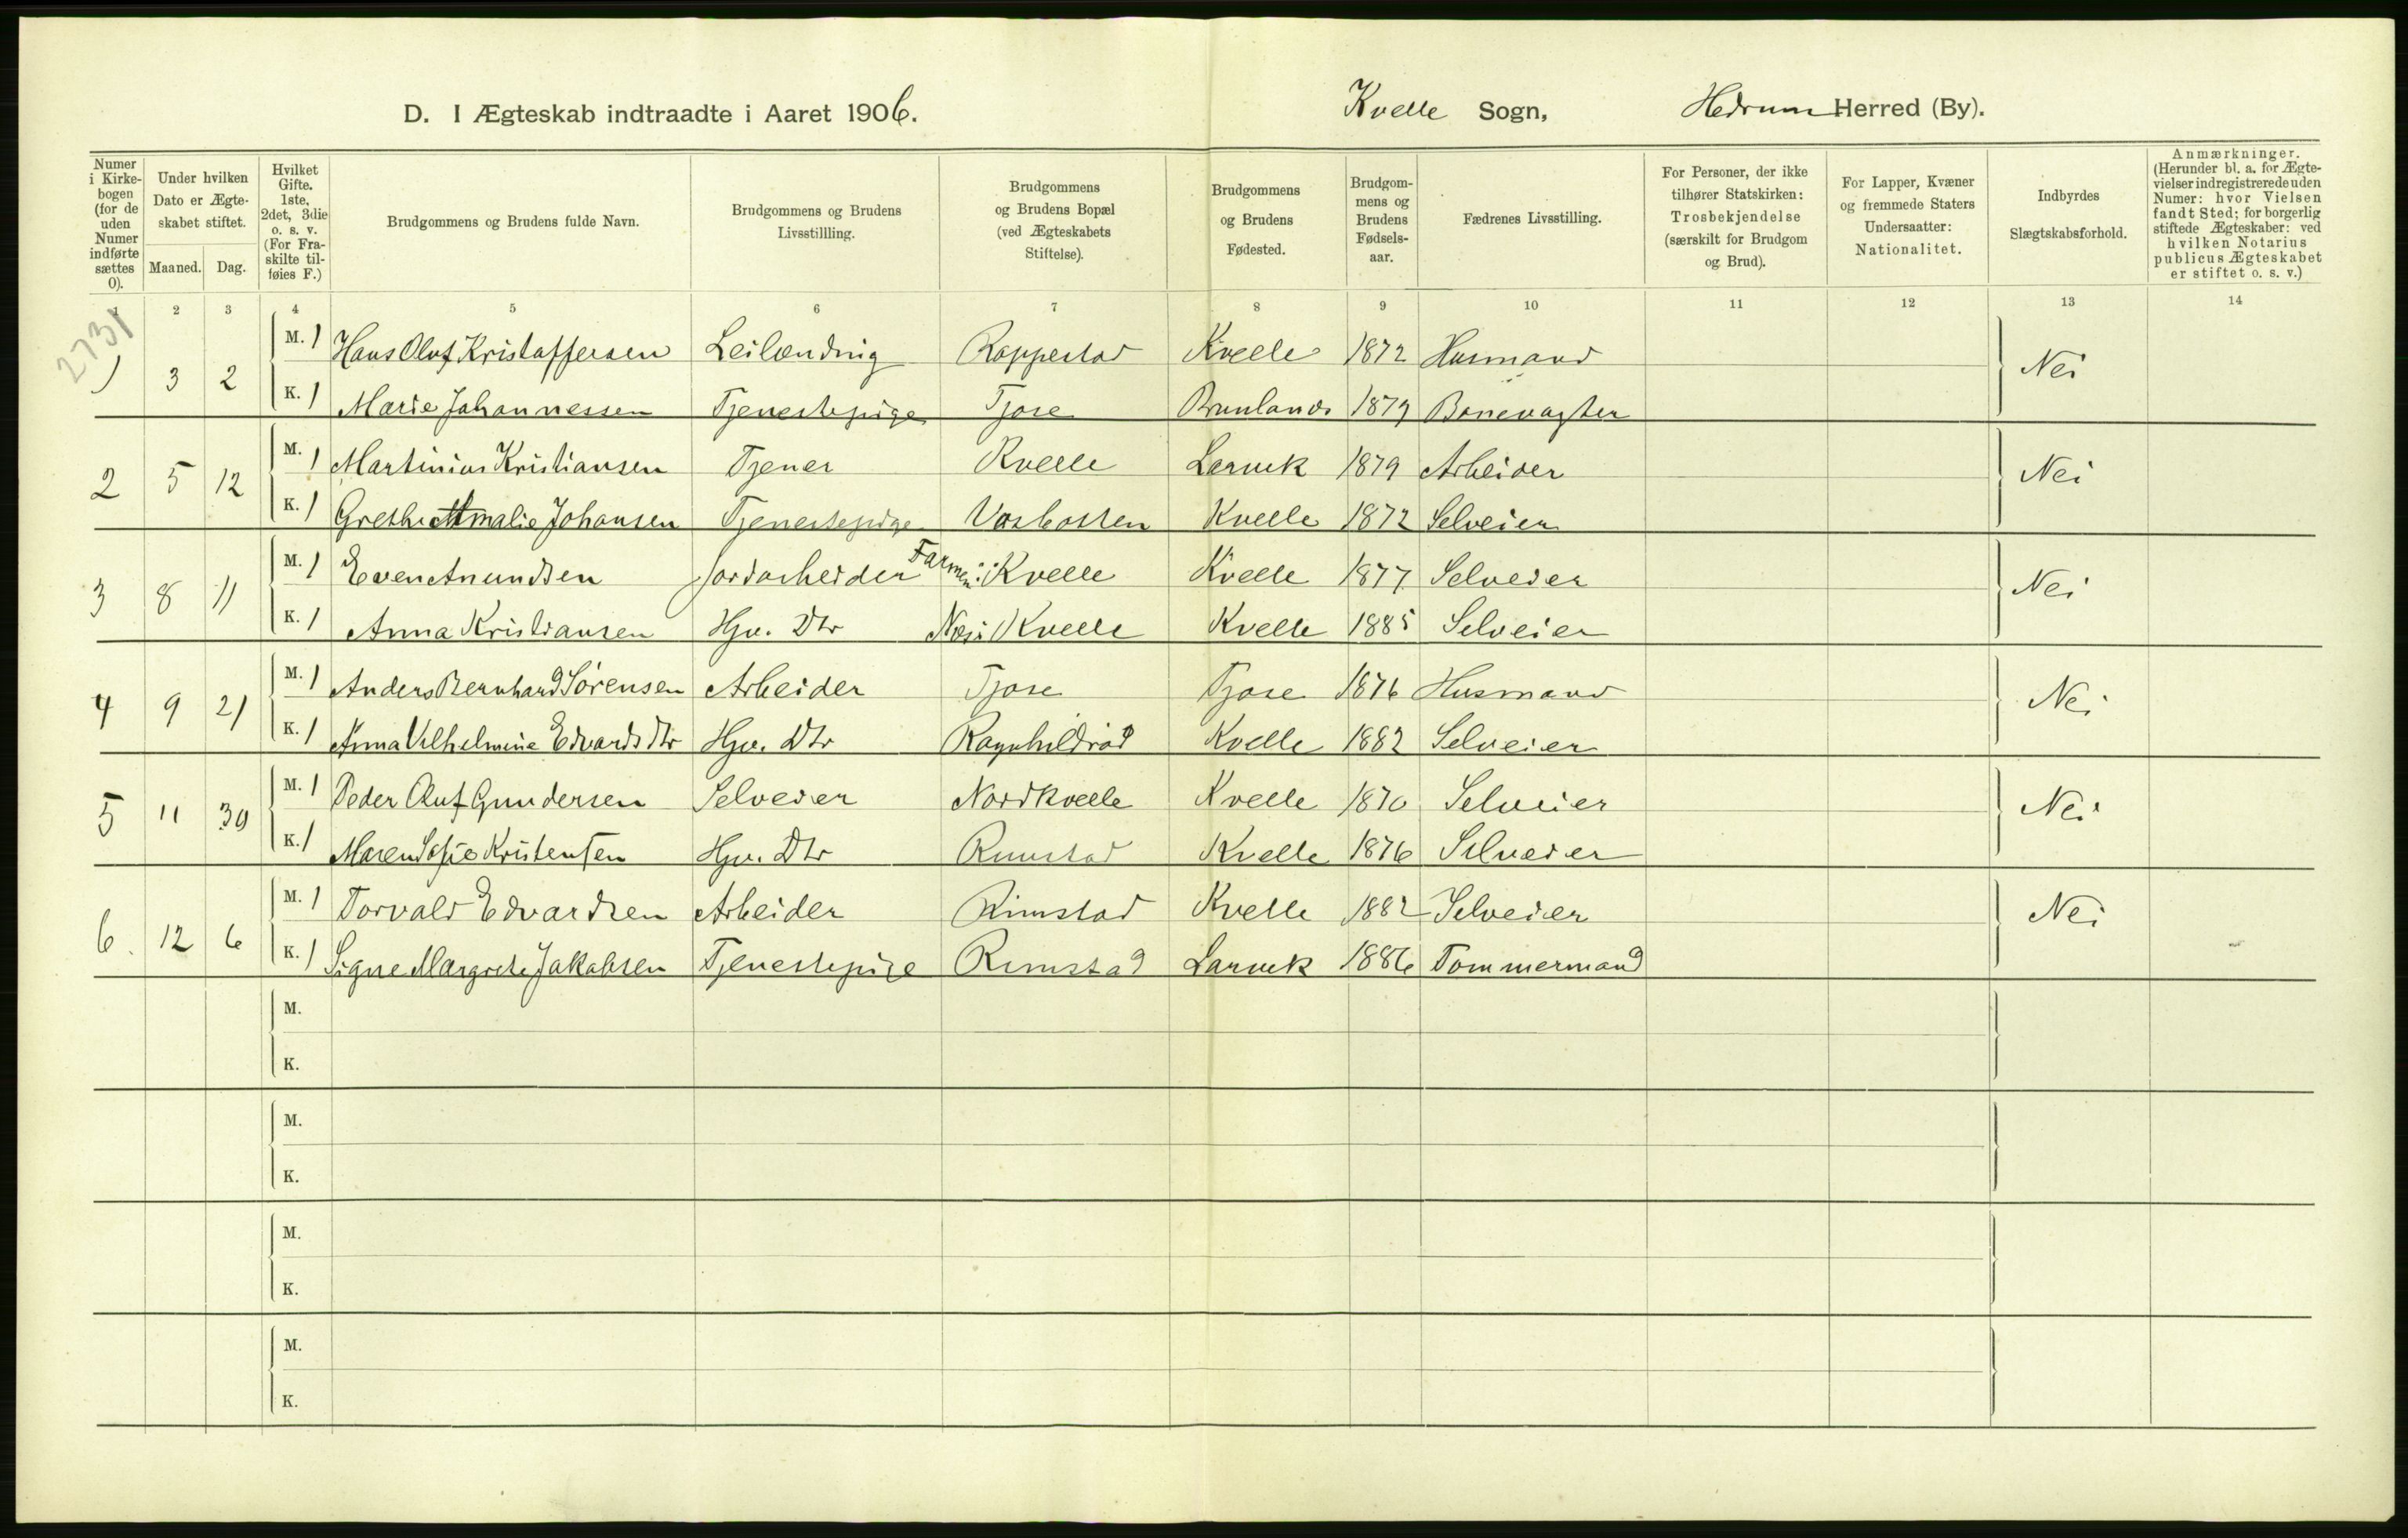 D. I Ægteskab indtraadte i Aaret 1906. Kvelle Sogn, Hedrum Herred (By).
Numer i Kirkebogen (for de uden Numer indførte sættes 0).
Under hvilken Dato er Ægteskabet stiftet.
Maaned. Dag.
Hvilket Gifte. 1ste, 2det, 3die o. s. v. (For Fraskilte tilføies F.)
Brudgommens og Brudens fulde Navn.
Brudgommens og Brudens Livsstillling.
Brudgommens og Brudens Bopæl (ved Ægteskabets Stiftelse).
Brudgommens og Brudens Fødested.
Brudgommens og Brudens Fødselsaar.
Fædrenes Livsstilling.
For Personer, der ikke tilhører Statskirken: Trosbekjendelse (særskilt for Brudgom og Brud).
For Lapper, Kvæner og fremmede Staters Undersaatter: Nationalitet.
Indbyrdes Slægtskabsforhold.
Anmærkninger. (Herunder bl. a. for Ægtevielser indregistrerede uden Numer: hvor Vielsen fandt Sted; for borgerlig stiftede Ægteskaber: ved hvilken Notarius publicus Ægteskabet er stiftet o. s. v.)
1 2 3 4 5 6 7 8 9 10 11 12 13 14
2731
1 3 2 M. 1 Hans Oluf Kristoffersen Leilænding Rappestad Kvelle 1872 Husmand Nei
K. 1 Marie Johannessen Tjenestepige Tjose Brunlanes 1879 Banevagter
2 5 12 M. 1 Martinius Kristiansen Tjener Kvelle Larvik 1879 Arbeider Nei
K. 1 Grethe Amalie Johansen Tjenestepige Vasbotten Kvelle 1872 Selveier
3 8 11 M. 1 Even Amundsen Jordarbeider Farmen i Kvelle Kvelle 1877 Selveier Nei
K. 1 Anna Kristiansen Hjv. Dtr Næs i Kvelle Kvelle 1885 Selveier
4 9 21 M. 1 Anders Bernhard Sørensen Arbeider Tjose Tjose 1876 Husmand Nei
K. 1 Anna Vilhelmine Edvards Dtr Hjv. Dtr Ragnhildrød Kvelle 1882 Selveier
5 11 30 M. 1 Peder Oluf Gundersen Selveier Nordkvelle Kvelle 1870 Selveier Nei
K. 1 Maren Sofie Kristensen Hjv. Dtr Rimstad Kvelle 1876 Selveier
6. 12 6 M. 1 Torvald Edvardsen Arbeider Rimstad Kvelle 1882 Selveier Nei
K. 1 Signe Margrete Jakobsen Tjenestepige Rimstad Larvik 1886 Tømmermand
M.
K.
M.
K.
M.
K.
M.
K.